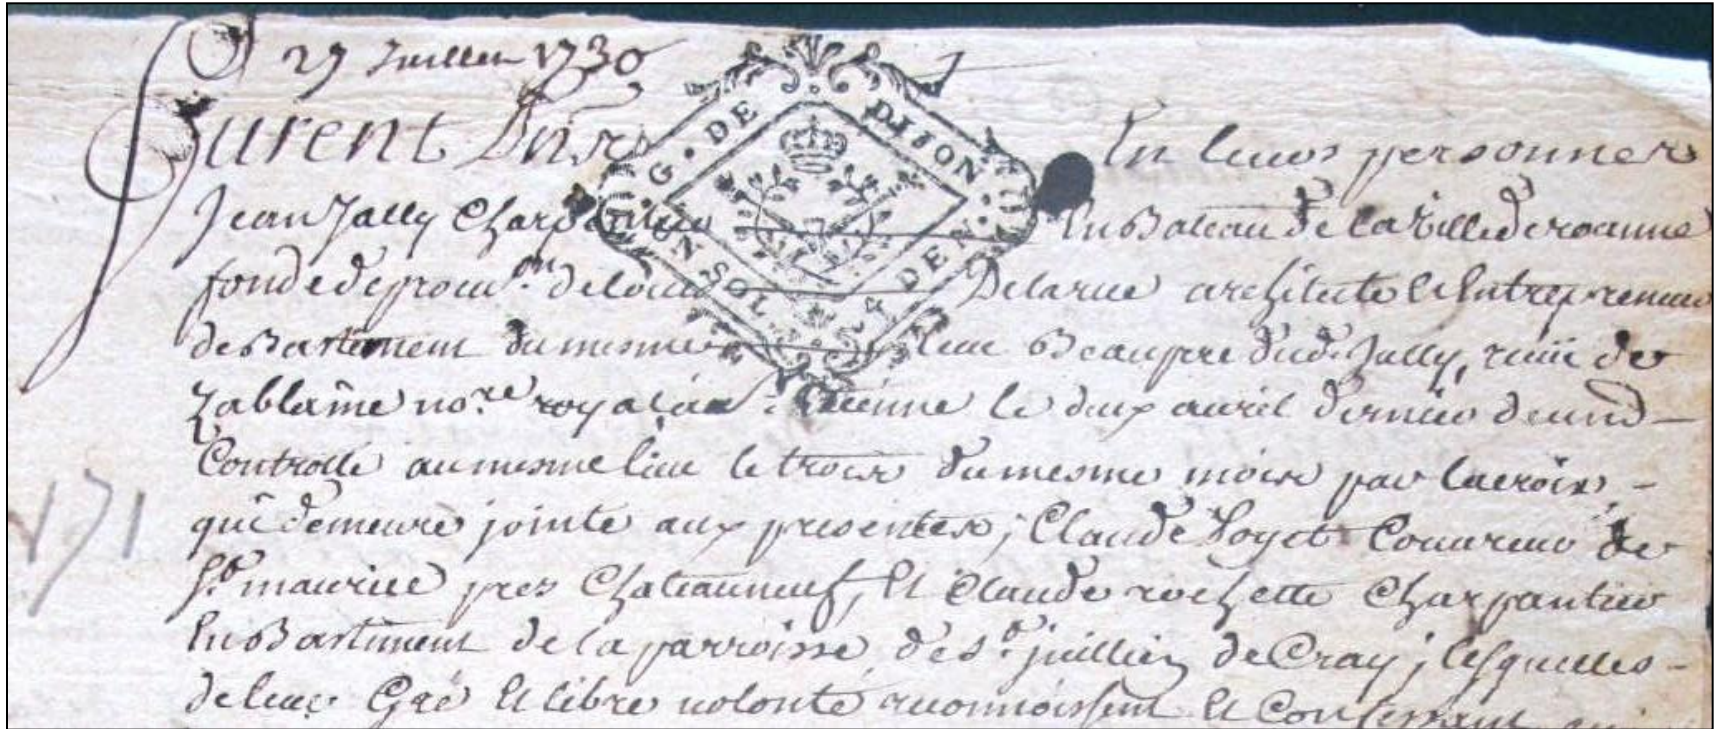 27 Juillet 1730
furent pnts En leurs personnes
G. DE DIJON
UN SOL. 4 DEN.
Jean Jally Charpentier En Bateau de la ville de roanne
fondé de procu.on de Louis Delarue architecte Et Entrepreneur
de Bastiment du mesme lieu Beaupere dud. Jally, reçüe de
no.re royal a le deux avril dernier
Controllé au mesme lieu le trois du mesme mois par lacroix -
qui demeure jointe aux presentes; Claude Couvreur de
St. maurice pres Chateauneuf, Et Claude rochette Charpantier
En Bastiment de la parroisse de St. juillien de Cray; lesquelles -
de leur Gré Et libre volonté reconnoissent Et Confessent
171